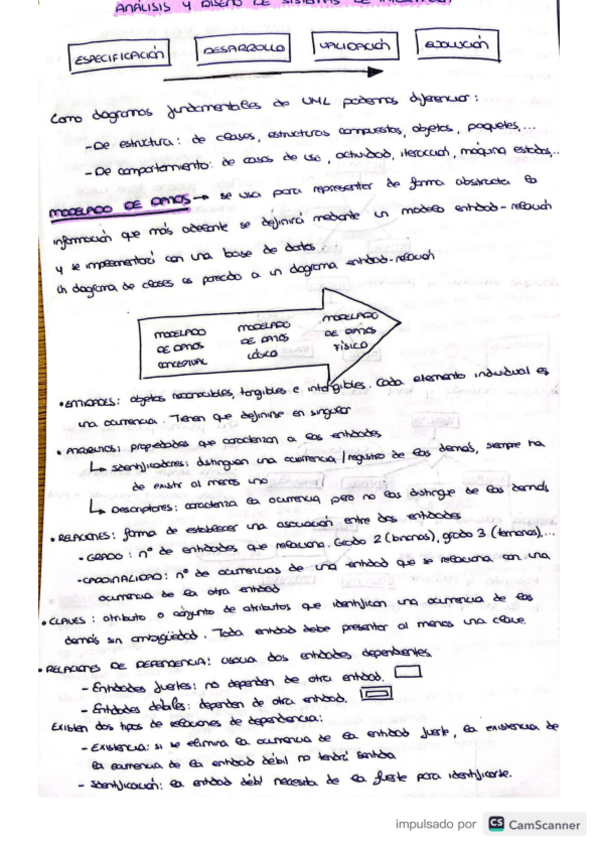 ANÁLISIS Y DISEÑO DE SISTEMAS DE
ESPECIFICACIÓN DESARROLLO VALIDACIÓN EVOLUCIÓN
Como diagramas fundamentales de UML podemos diferenciar:
- De estructura: de clases, estructuras compuestas, objetos, paquetes,...
- De comportamiento: de casos de uso, actividad, iteracción, máquina estados,..
MODELADO DE DATOS → se usa para representar de forma abstracta la
información que más adelante se definirá mediante un modelo entidad-relación
y se implementará con una base de datos.
Un diagrama de clases es parecido a un diagrama entidad-relación
MODELADO DE DATOS CONCEPTUAL
MODELADO DE DATOS LÓGICO
MODELADO DE DATOS FÍSICO
• ENTIDADES: objetos reconocibles, tangibles e intangibles. Cada elemento individual es
una ocurrencia. Tienen que definirse en singular
• ATRIBUTOS: propiedades que caracterizan a las entidades
↳ Identificadores: distinguen una ocurrencia/registro de las demás, siempre ha
de existir al menos uno
↳ Descriptores: caracteriza la ocurrencia pero no las distingue de las demás
• RELACIONES: forma de establecer una asociación entre dos entidades
- GRADO: nº de entidades que relaciona. Grado 2 (binarias), grado 3 (ternarias),...
- CARDINALIDAD: nº de ocurrencias de una entidad que se relaciona con una
ocurrencia de la otra entidad
• CLAVES: atributo o conjunto de atributos que identifican una ocurrencia de las
demás sin ambigüedad. Toda entidad debe presentar al menos una clave
• RELACIONES DE DEPENDENCIA: asocia dos entidades dependientes
- Entidades fuertes: no dependen de otra entidad.
- Entidades débiles: dependen de otra entidad.
Existen dos tipos de relaciones de dependencia:
- Existencia: si se elimina la ocurrencia de la entidad fuerte, la existencia de
la ocurrencia de la entidad débil no tendrá sentido
- Identificación: la entidad débil necesita de la fuerte para identificarse.
impulsado por CS CamScanner